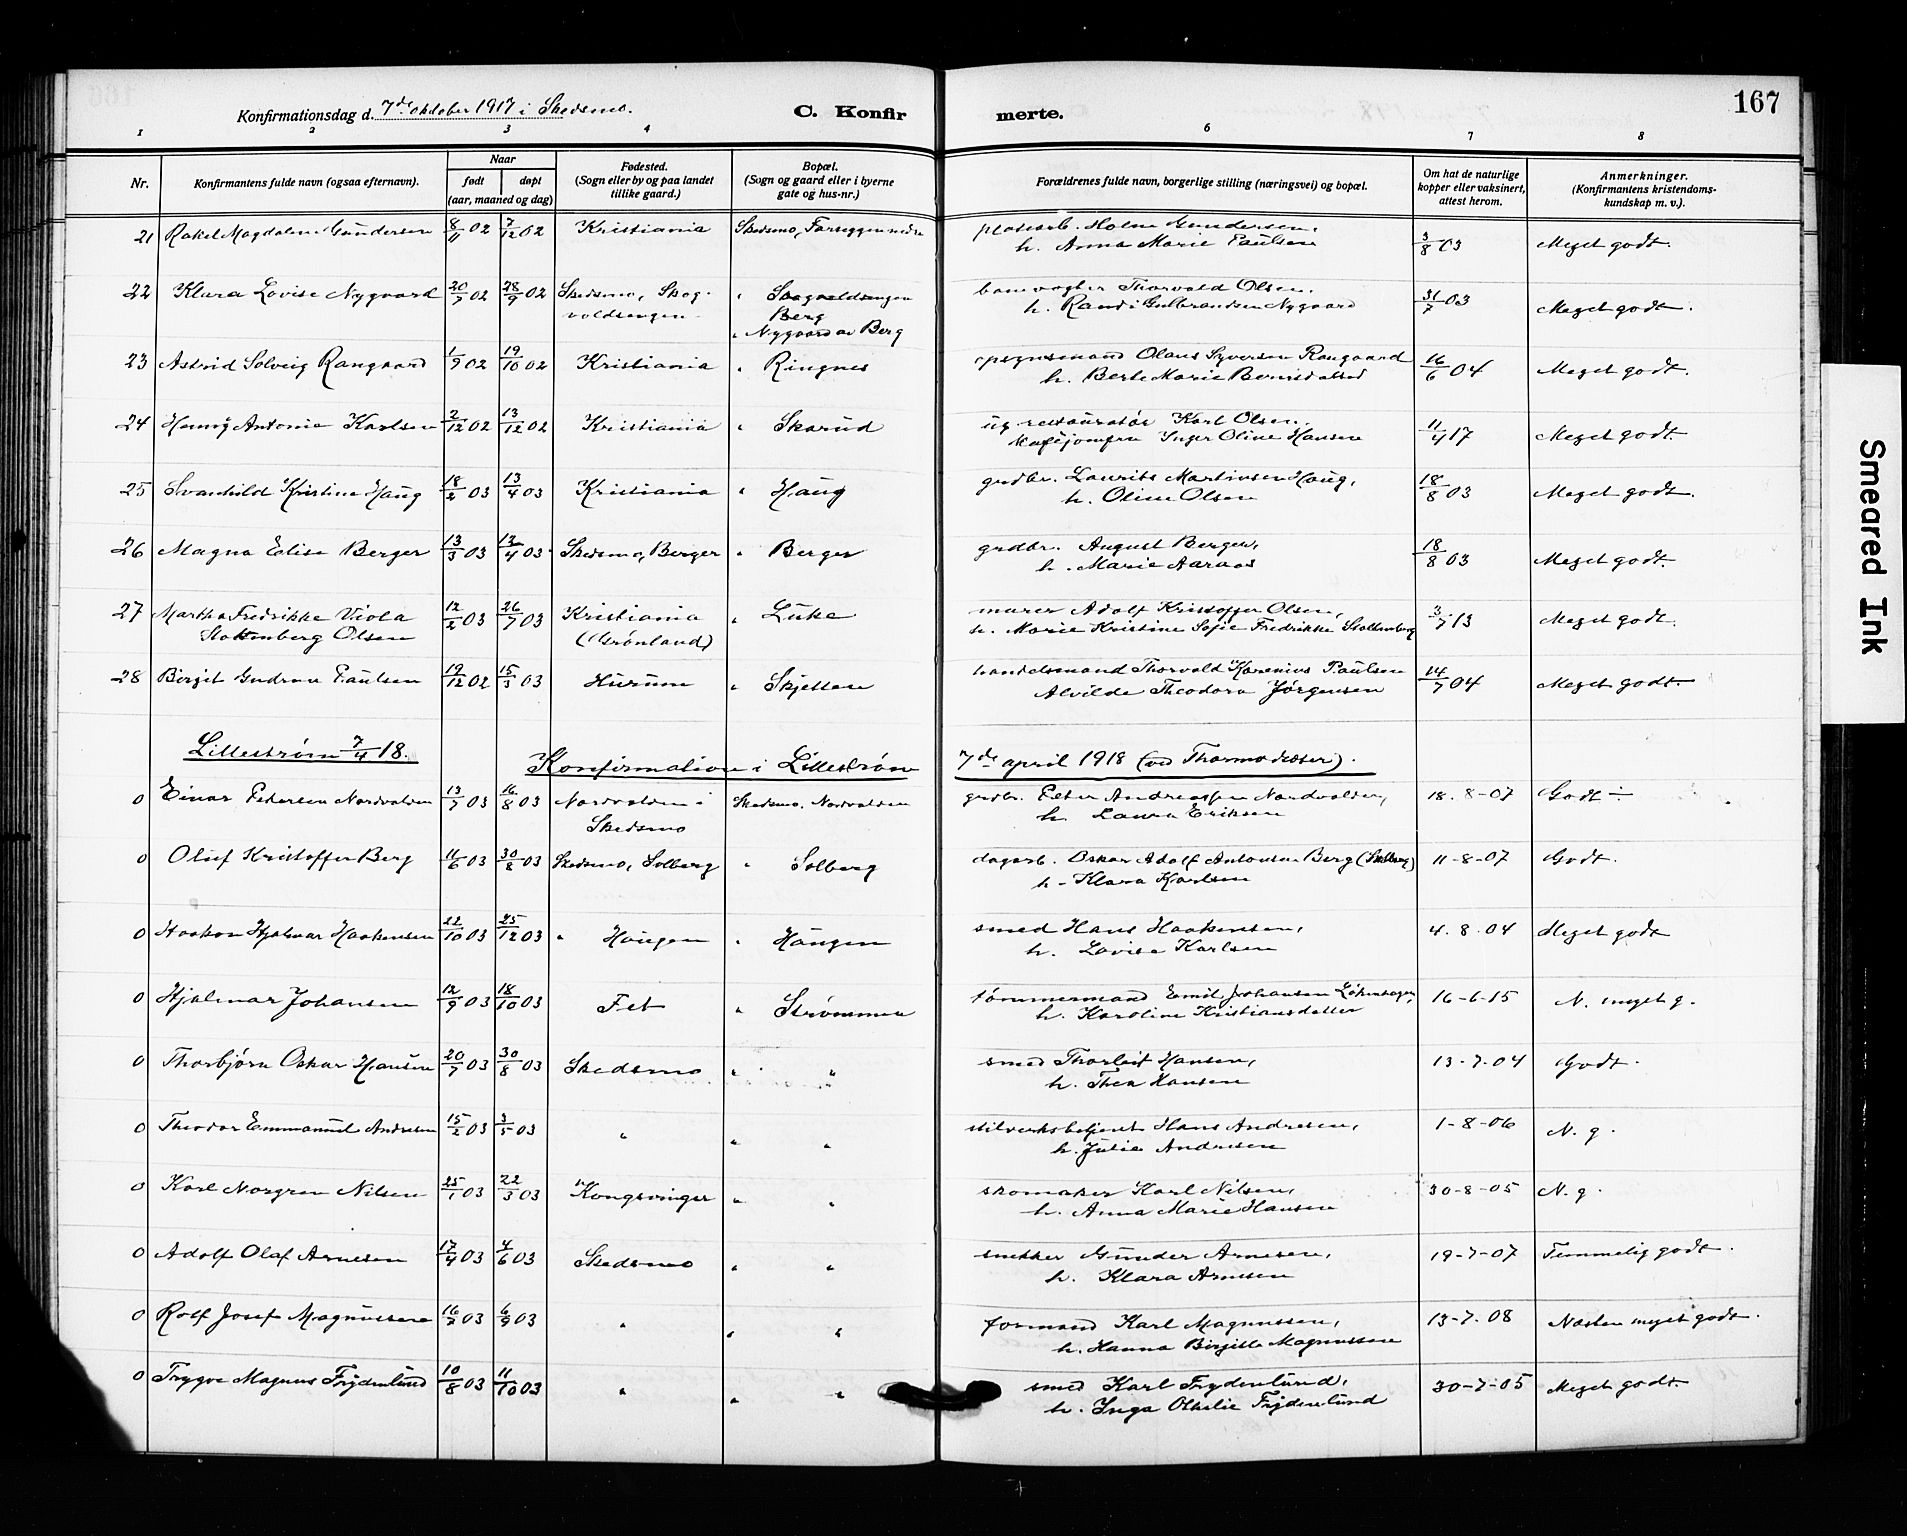 167
Konfirmationsdag d. 7de oktober 1917 i Skedsmo.
C. Konfirmerte.
1 2 3 4 6 7 8
Nr.
Konfirmantens fulde navn (ogsaa efternavn).
Naar
født døpt
(aar, maaned og dag)
Fødested.
(Sogn eller by og paa landet
tillike gaard.)
Bopæl.
(Sogn og gaard eller i byerne
gate og hus-nr.)
Forældrenes fulde navn, borgerlige stilling (næringsvei) og bopæl.
Om hat de naturlige
kopper eller vaksinert,
attest herom.
Anmerkninger.
(Konfirmantens kristendoms-
kundskap m. v.).
21 Rakel Magdalene Gundersen 8/11 02 7/12 02 Kristiania Skedsmo, Farseggen nedre pladsarb. Holm Gundersen,
h. Anna Marie Paulsen 3/8 03 Meget godt.
22 Klara Lovise Nygaard 20/7 02 28/9 02 Skedsmo, Skog- " Skogvoldsengen banevogter Thorvald Olsen,
voldsengen Berg h. Randi Gulbrandsen Nygaard 31/7 03 Meget godt.
" Nygaard av Berg
23 Astrid Solveig Rangaard 1/9 02 19/10 02 Kristiania " Ringnes opsynsmand Olaus Syversen Rangaard
h. Berte Marie 16/6 04 Meget godt.
24 Henny Antonie Karlsen 2/12 02 13/12 02 Kristiania " Skarud ug restauratør Karl Olsen,
Inger Oline Hansen 11/4 17 Meget godt.
25 Svanhild Kristine Haug 18/2 03 13/4 03 Kristiania " Haug grdbr. Laurits Martinsen Haug,
h. Oline Olsen 18/8 03 Meget godt.
26 Magna Elise Berger 13/3 03 13/4 03 Skedsmo, Berger " Berger grdbr. August Berger,
h. Marie Aaraas 18/8 03 Meget godt.
27 Martha Fredrikke Viola 12/2 03 26/7 03 Kristiania " Luke murer Adolf Kristoffer Olsen,
Stoltenberg Olsen (Grønland) h. Marie Kristine Sofie Fredrikke Stoltenberg 3/7 13 Meget godt.
28 Birgit Gudrun Paulsen 19/12 02 15/3 03 Hurum " Skjetten handelsmand Thorvald Karenius Paulsen
Alvilde Theodora Jørgensen 14/7 04 Meget godt.
Lillestrøm 7/4 18. Konfirmation i Lillestrøm 7de april 1918 (ved Thormodsæter).
0 Einar Petersen Nordvolden 13/7 03 16/8 03 Nordvolden i Skedsmo, Nordvolden grdbr. Peter Andreassen Nordvolden, 18.8-07 Godt ÷
Skedsmo h. Laura Eriksen
0 Oluf Kristoffer Berg 11/6 03 30/8 03 Skedsmo, Solberg " Solberg dagarb. Oskar Adolf Antonsen Berg (Solberg) 11-8-07 Godt.
h. Klara Karlsen
0 Haakon Hjalmar Haakensen 22/10 03 25/12 03 " Haugen " Haugen smed Hans Haakensen, 4.8.04 Meget godt
h. Lovise Karlsen
0 Hjalmar Johansen 12/9 03 18/10 03 Fet " Strømmen tømmermand Emil Johansen 16-6-15 N. meget g.
h. Karoline Kristiansdatter
0 Thorbjørn Oskar Hansen 20/7 03 30/8 03 Skedsmo " " smed Thorleif Hansen, 13-7-04 Godt.
h. Thea Hansen
0 Theodor Emmanuel Andresen 15/2 03 3/5 03 " " " Hans Andresen, 1-8-06 N. g.
h. Julie Andresen
0 Karl Norgren Nilsen 25/1 03 22/3 03 Kongsvinger " " skomaker Karl Nilsen, 30-8-05 N. g.
h. Anna Marie Hansen
0 Adolf Olaf Arnesen 17/4 03 4/6 03 Skedsmo " " snekker Gunder Arnesen, 19-7-07 Temmelig godt.
h. Klara Arnesen
0 Rolf Josef Magnussen 16/7 03 6/9 03 " " " formand Karl Magnussen, 13-7.08 Næsten meget godt.
h. Hanna Birgitte Magnussen
0 Trygve Magnus Frydenlund 10/8 03 11/10 03 " " " smed Karl Frydenlund, 30-7-05 Meget godt.
h. Inga Othelie Frydenlund
Smeared Ink